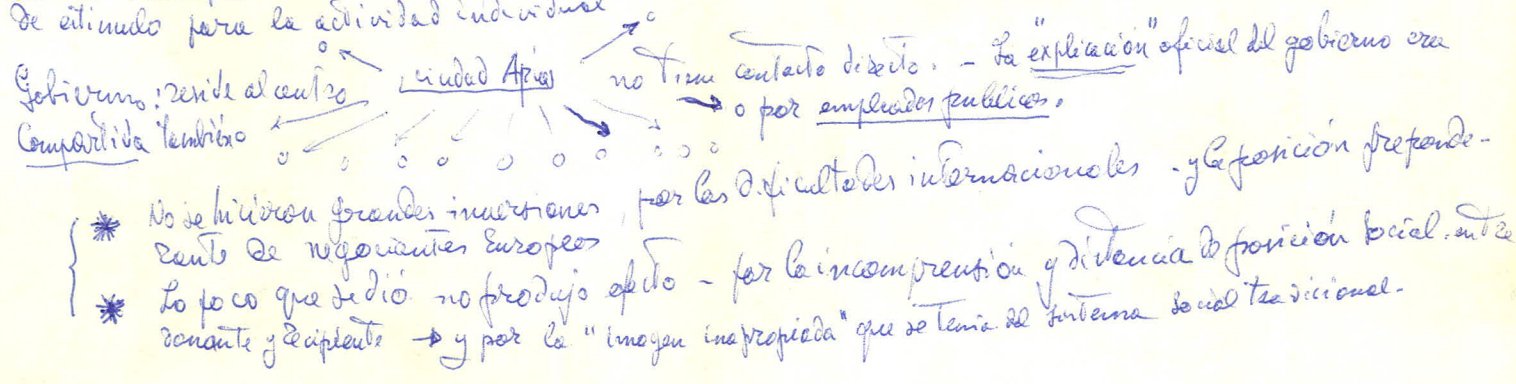 de estimulo para la actividad individual
Gobierno: reside al centro
Compartida también
ciudad
no tienen contacto directo. - La "explicación" oficial del gobierno era
o por empleados publicos.
* No se hicieron grandes inversiones, por las dificultades internacionales - y la posición preponde-
rante de negociantes Europeos
* Lo poco que se dió no produjo efecto - por la incomprensión y distancia de posición social. entre
donante y recipiente → y por la "imagen inapropiada" que se tenia del sistema social tradicional.